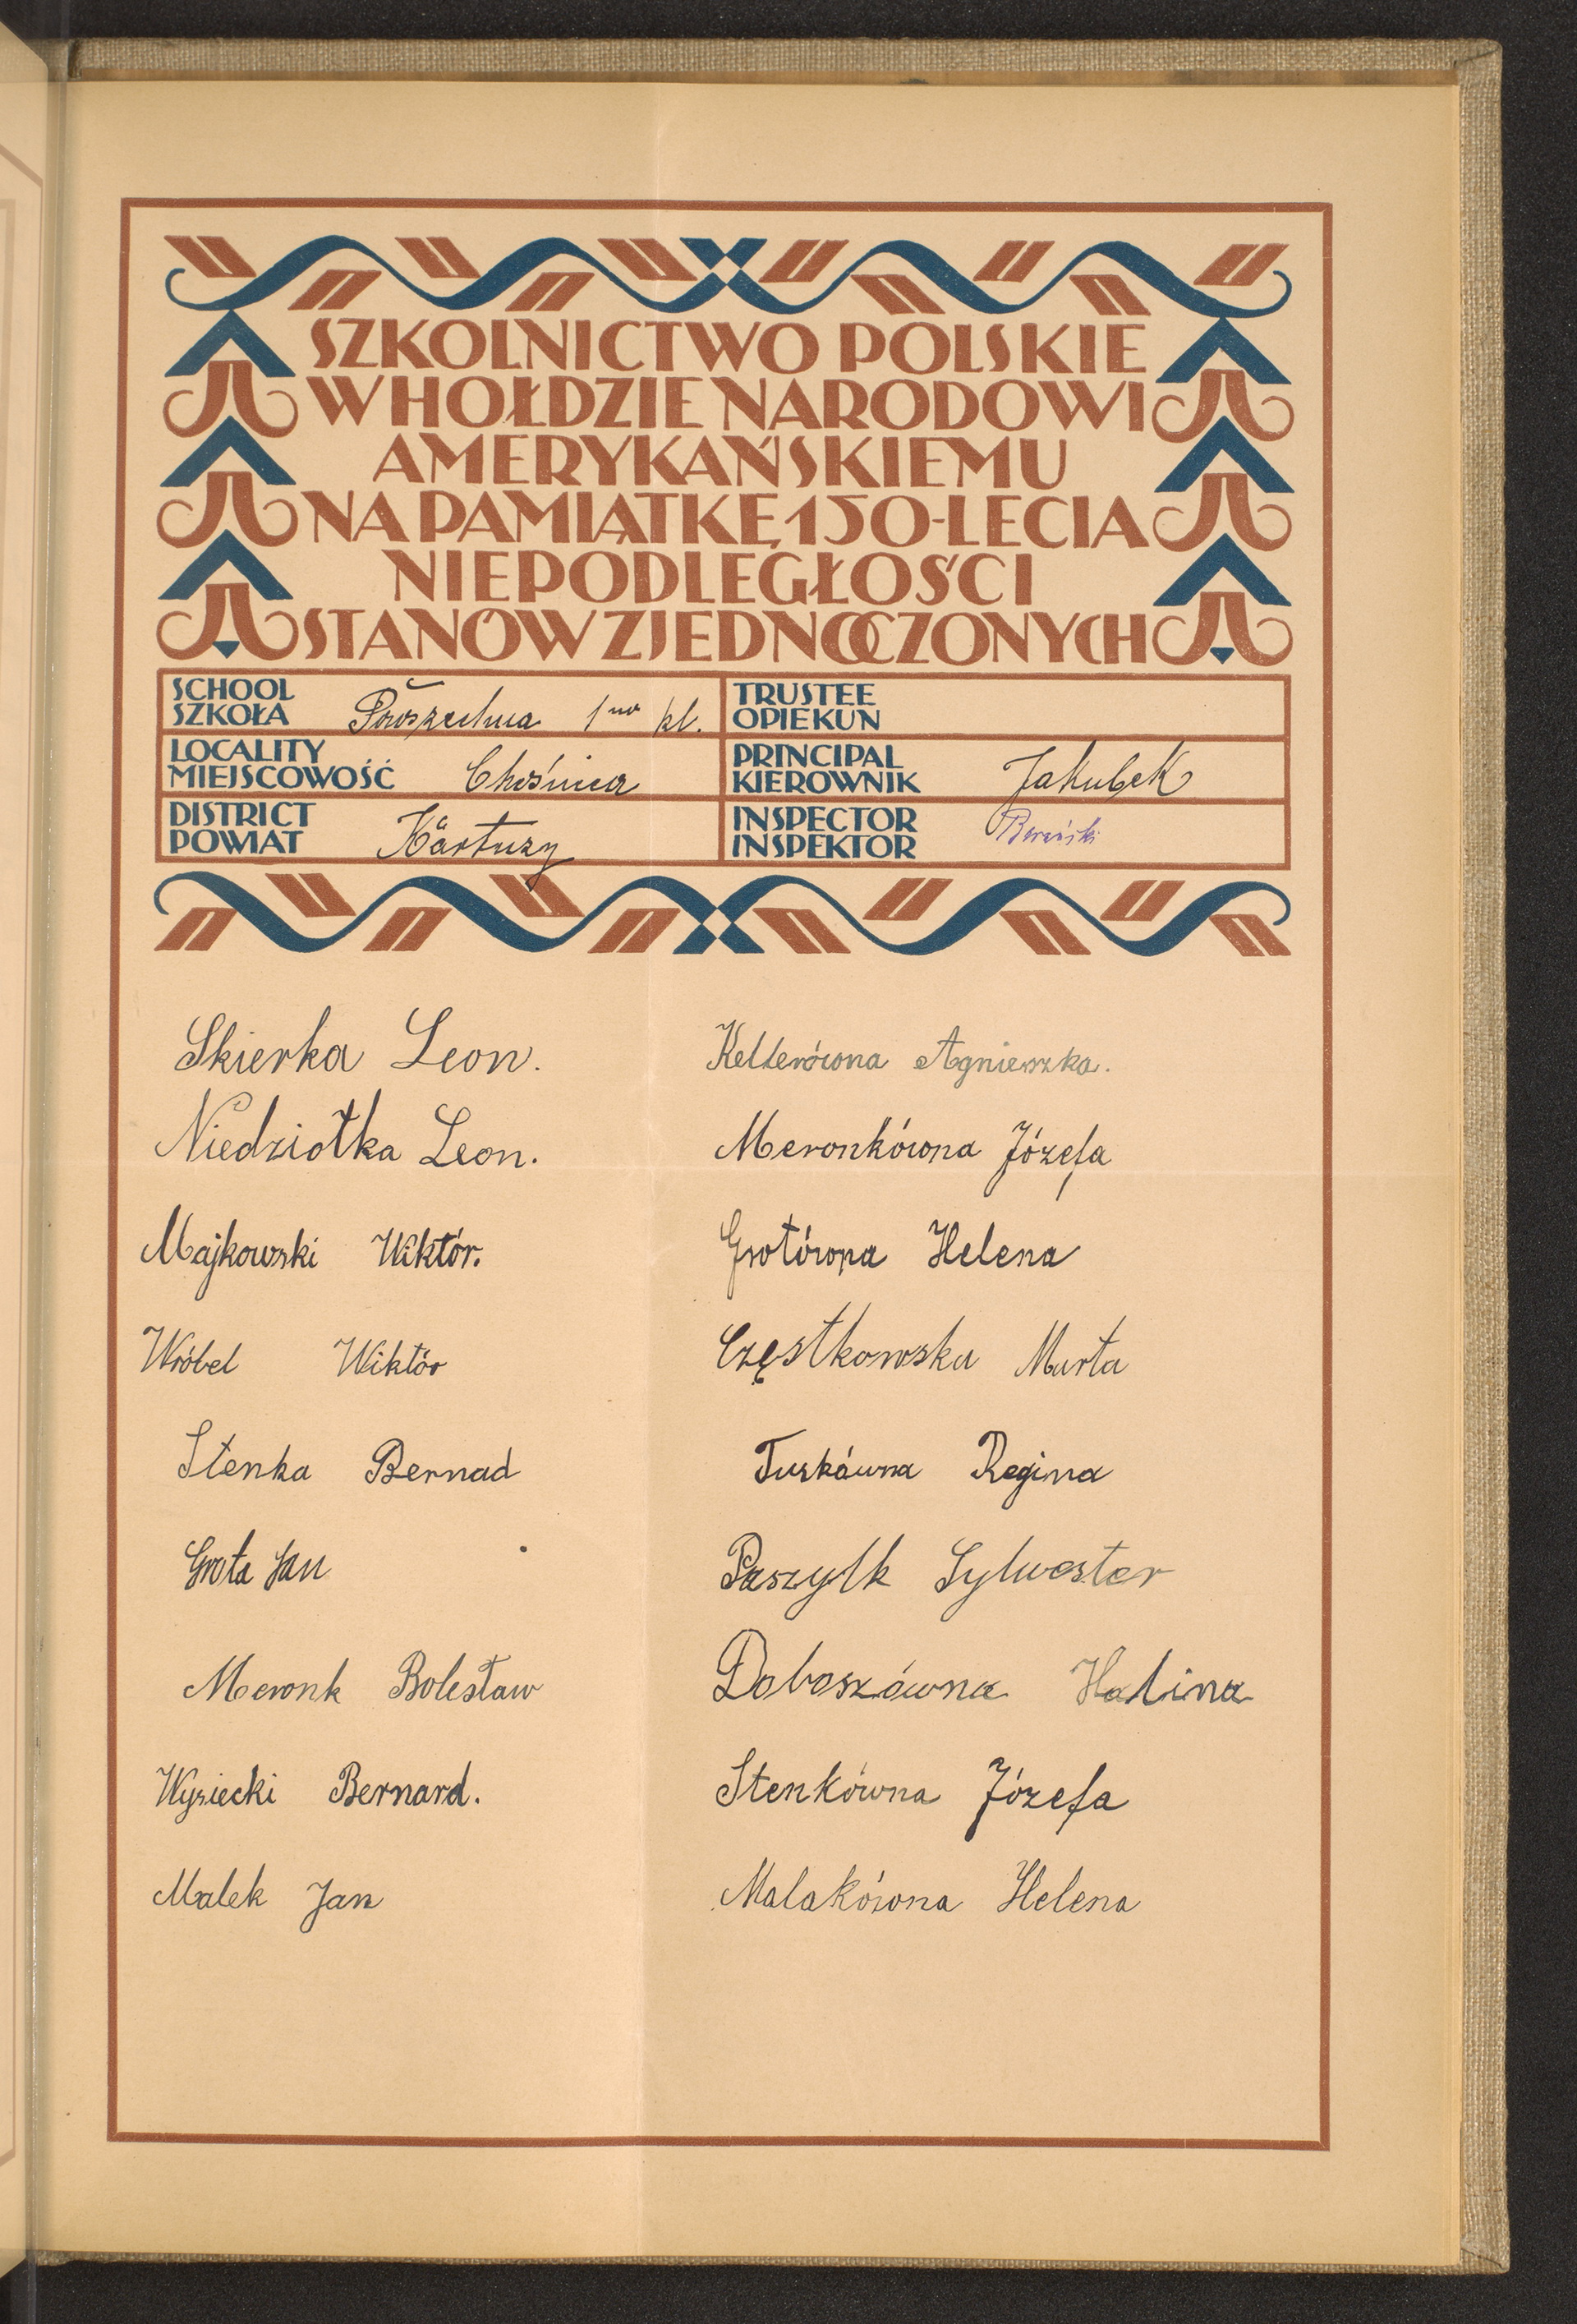 SZKOLNICTWO POLSKIE
W HOŁDZIE NARODOWI
AMERYKAŃSKIEMU
NA PAMIĄTKĘ 150-LECIA
NIEPODLEGŁOŚCI
STANÓW ZJEDNOCZONYCH
SCHOOL
SZKOŁA Powszechna 1no kl.
TRUSTEE
OPIEKUN
LOCALITY
MIEJSCOWOŚĆ Chośnica
PRINCIPAL
KIEROWNIK Jakubek
DISTRICT
POWIAT Kartuzy
INSPECTOR
INSPEKTOR
Skierka Leon.
Niedziołka Leon.
Majkowski Wiktór.
Wróbel Wiktór
Stenka Bernad
Grota Jan
Meronk Bolesław
Wysiecki Bernard.
Malek Jan
Kellerówna Agnieszka.
Meronkówna Józefa
Grotówna Helena
Częstkowska Marta
Turkówna Regina
Paszylk Sylwester
Doboszówna Halina
Stenkówna Józefa
Malakówna Helena